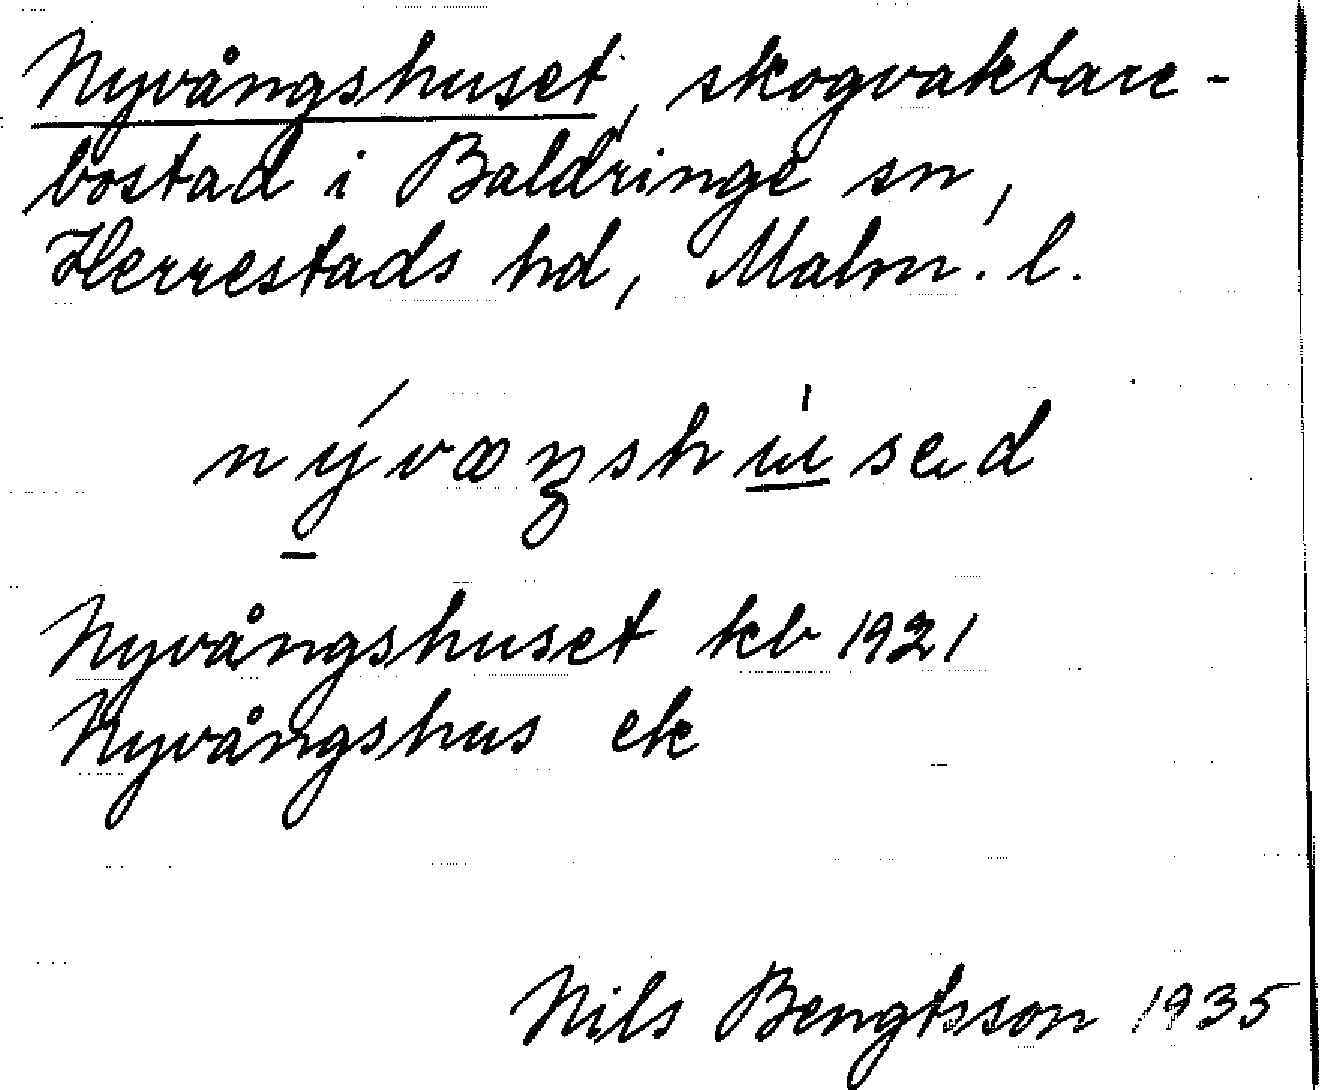 Nyvångshuset, skogvaktare-
bostad i Baldringe sn,
Herrestads hd, Malm. l.
Nyvångshuset kb 1921
Nyvångshus ek
Nils Bengtsson 1935